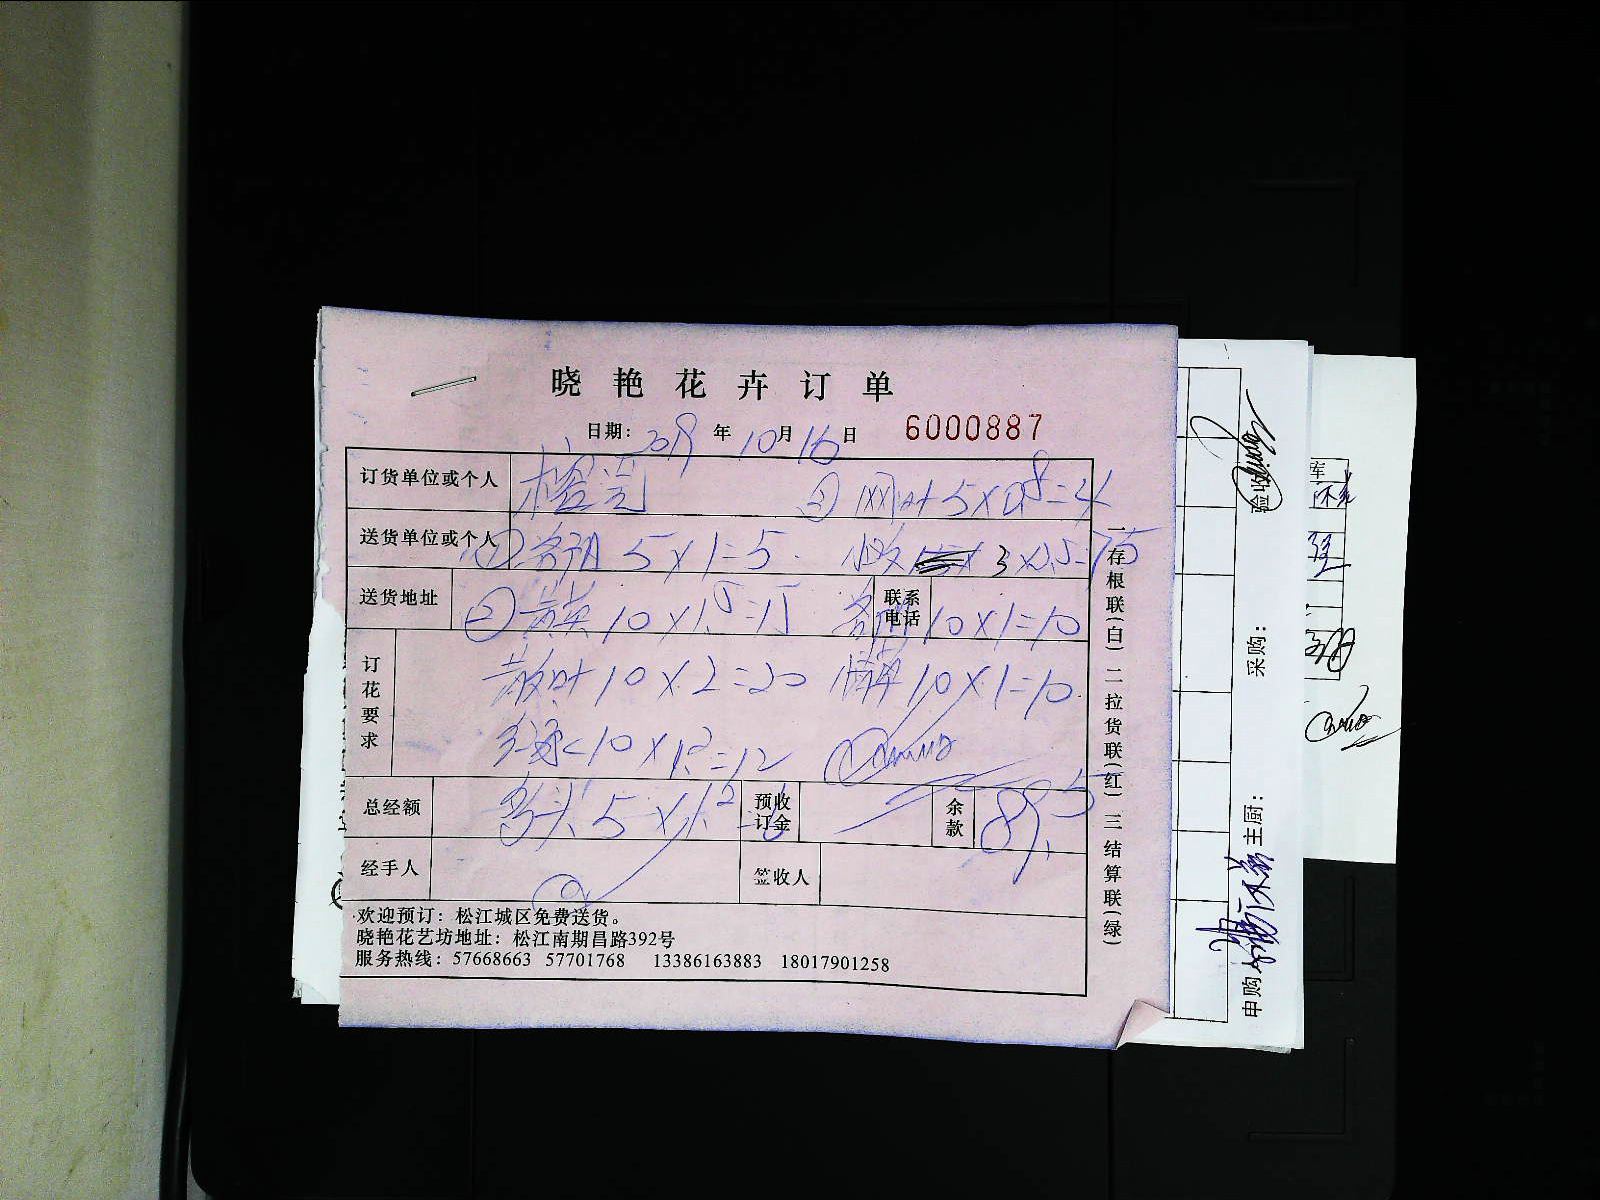 晓艳花卉订单
日期: 2019 年 10 月 16 日 6000887
订货单位或个人 ③ 网叶 5×0.8=4
送货单位或个人 ① 5×1=5 3×2.5=7.5
送货地址 ② 黄英 10×1.5=15 联系电话 10×1=10
订花要求 散叶 10×2=20 10×1=10
10×1.2=12
总经额 多头 5×1.2=6 预收订金 余款 89.5
经手人 签收人
欢迎预订: 松江城区免费送货。
晓艳花艺坊地址: 松江南期昌路392号
服务热线: 57668663 57701768 13386163883 18017901258
一存根联(白) 二拉货联(红) 三结算联(绿)
验收
采购:
主厨:
申购
库